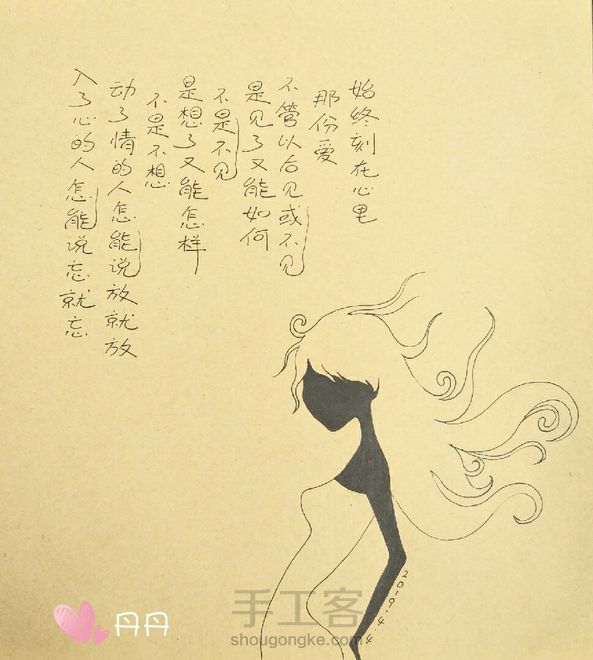 入了心的人怎能说忘就忘
动了情的人怎能说放就放
不是不想
是想了又能怎样
不是不见
是见了又能如何
不管以后见或不见
那份爱
始终刻在心里
2019.4.4
丹丹
手工客
shougongke.com